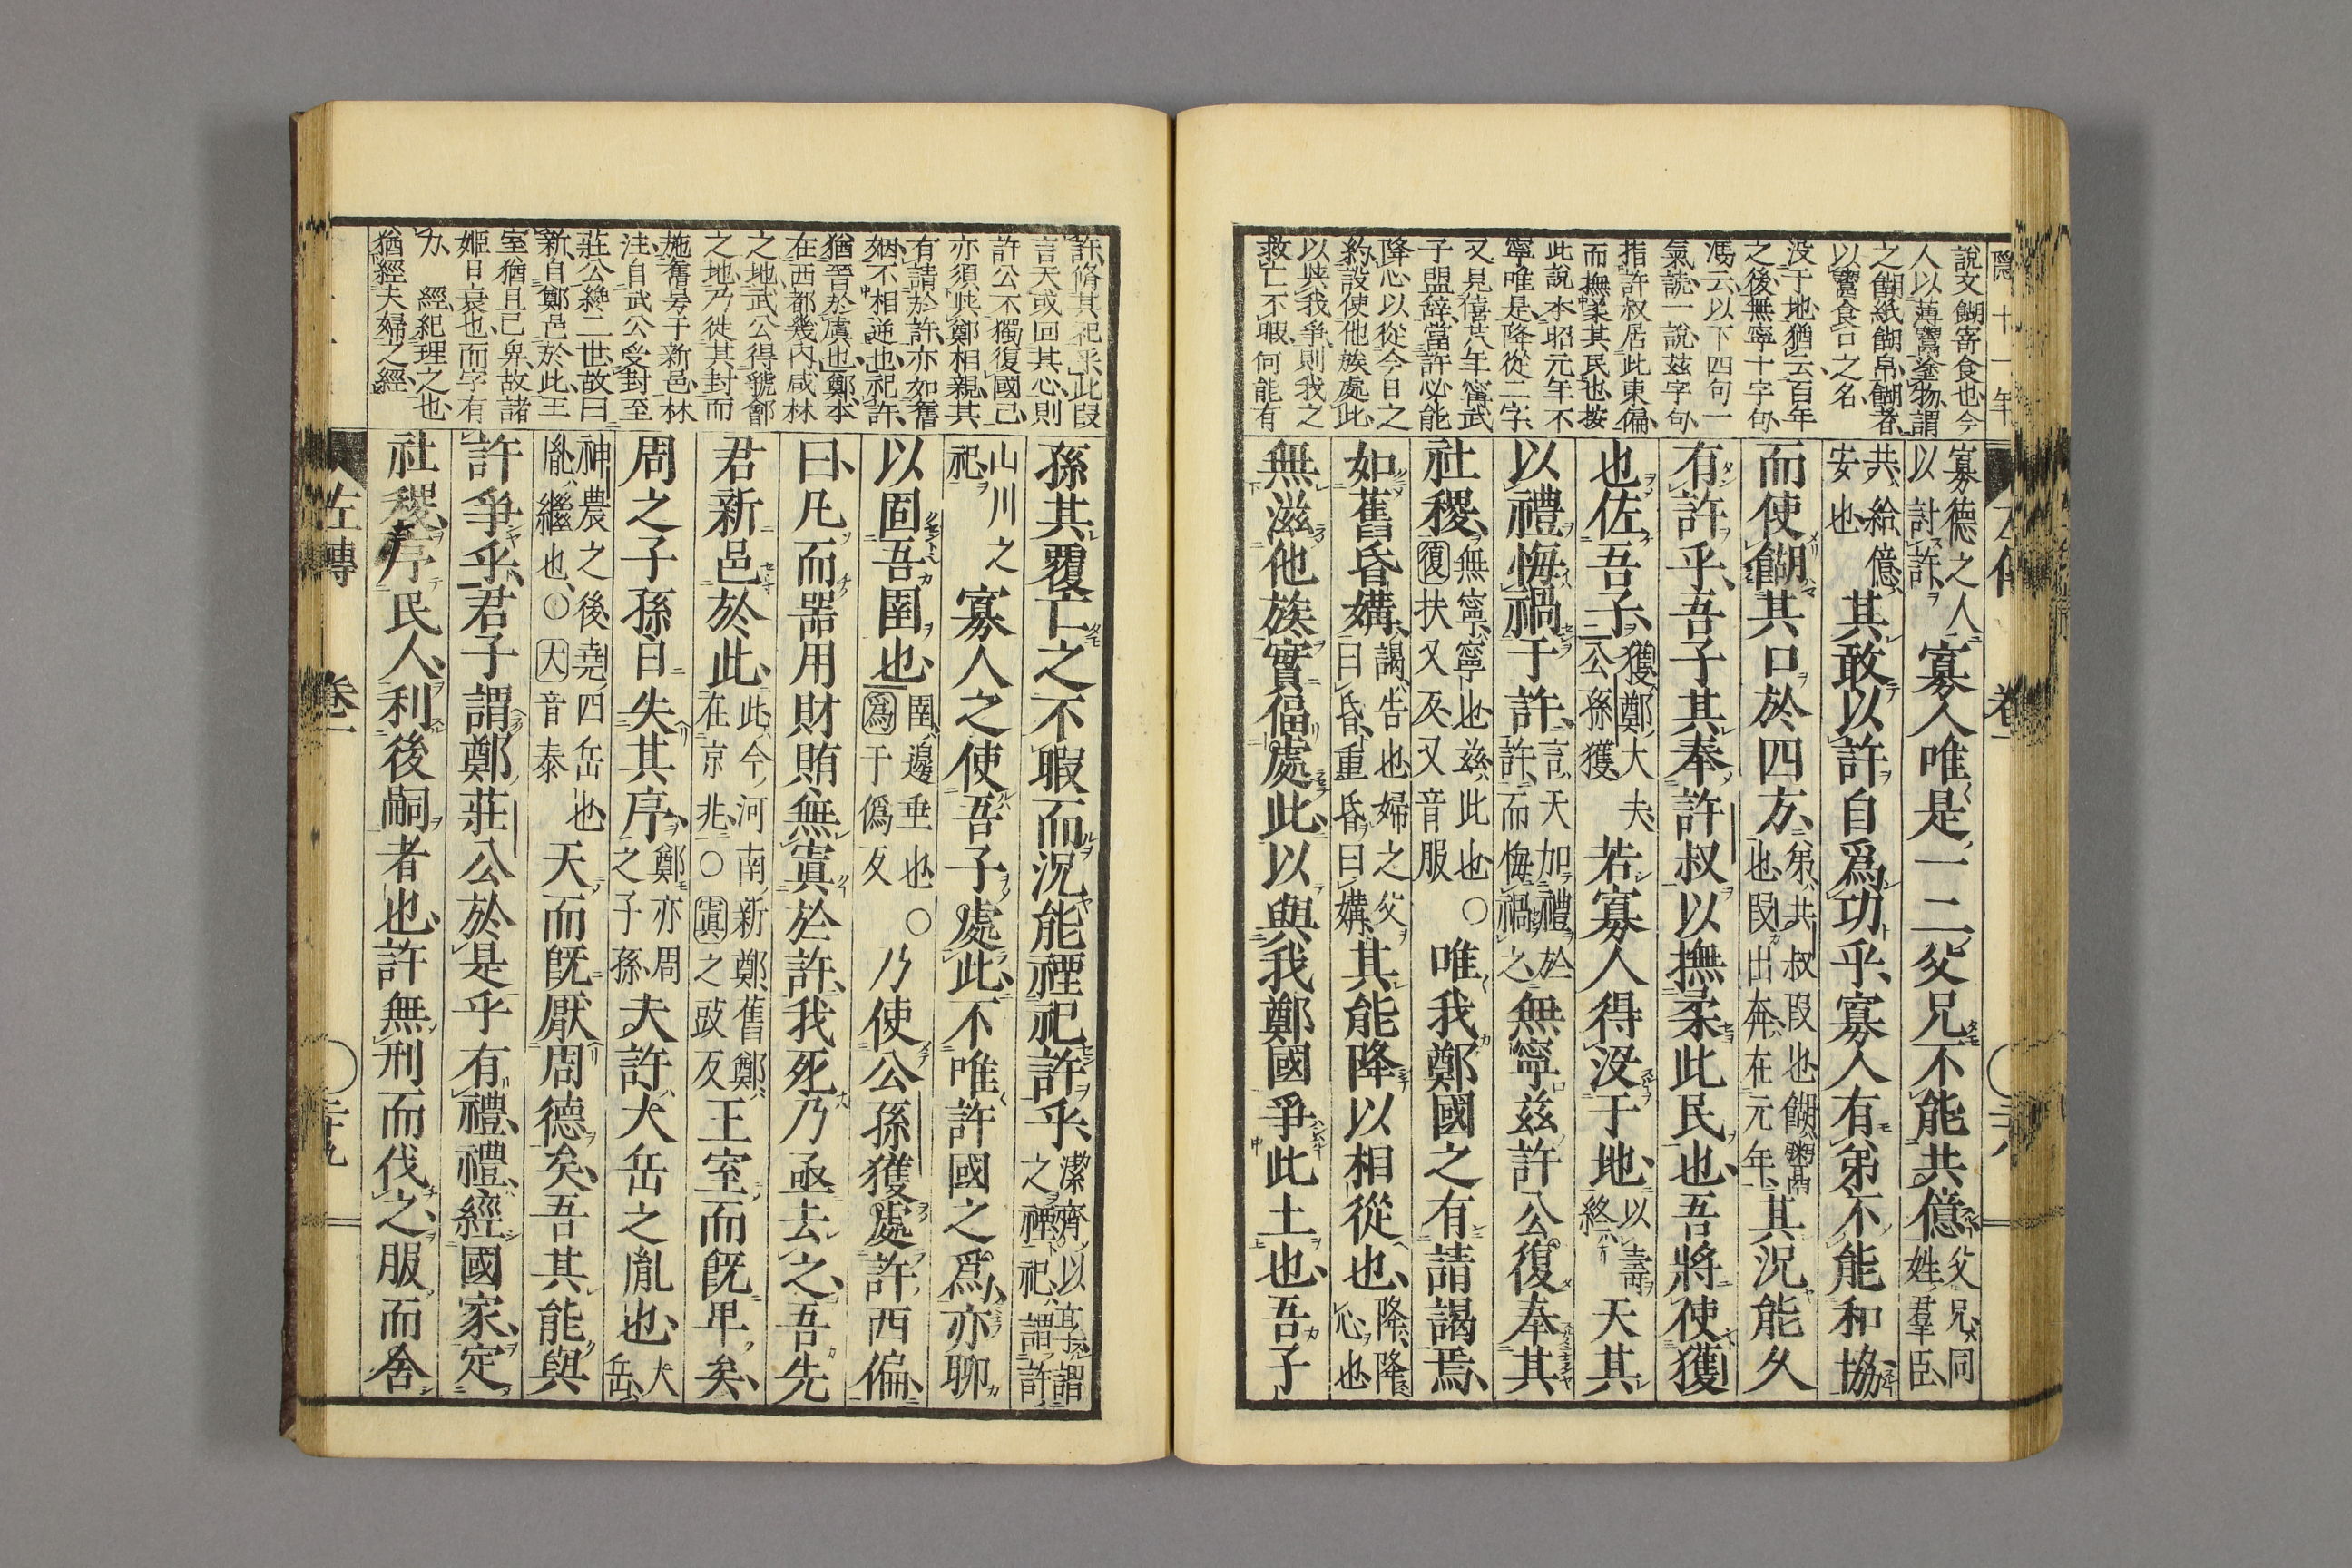 隱十一年
說文餬寄食也今
人以薄鬻塗物謂
之餬紙餬帛餬者
以鬻食口之名
没于地猶云百年
之後無寧十字句
馮云以下四句一
氣読一說茲字句
指許叔居此東偏
而撫柔其民也按
此說本昭元年不
寧唯是降從二字
又見僖廿八年甯武
子盟辭當許必能
降心以從今日之
約設使他族處此
以與我爭則我之
救亡不暇何能有
寡德之人以討許寡人唯是一二父兄不能共億父兄同姓羣臣
共給億安也其敢以許自爲功乎寡人有弟不能和協
而使餬其口於四方弟共叔段也餬鬻也段出奔在元年其況能久
有許乎吾子其奉許叔以撫柔此民也吾將使獲
也佐吾子獲鄭大夫公孫獲若寡人得没于地以壽終天其
以禮悔禍于許言天加禮於許而悔禍之無寧茲許公復奉其
社稷無寧寧也茲此也○復扶又反又音服唯我鄭國之有請謁焉
如舊昏媾謁告也婦之父曰昏重昏曰媾其能降以相從也降降心也
無滋他族實偪處此以與我鄭國爭此土也吾子
卷一
許脩其祀乎此段
言天或回其心則
許公不獨復國已
亦須與鄭相親其
有請於許亦如舊
姻不相逆也祀許
猶晉於虞也鄭本
在西都畿内咸林
之地武公得虢鄶
之地乃徙其封而
施舊号于新邑林
注自武公受封至
莊公絶二世故曰
新自鄭邑於此王
室猶且已卑故諸
姬日衰也而字有
力 經紀理之也
猶經夫婦之經
孫其覆亡之不暇而況能禋祀許乎潔齊以享謂之禋祀謂許
山川之祀寡人之使吾子處此不唯許國之爲亦聊
以固吾圉也圉邊垂也○爲于僞反乃使公孫獲處許西偏
曰凡而器用財賄無寘於許我死乃亟去之吾先
君新邑於此此今河南新鄭舊鄭在京兆○寘之豉反王室而既卑矣
周之子孫日失其序鄭亦周之子孫夫許大岳之胤也大岳
神農之後堯四岳也胤繼也○大音泰天而既厭周德矣吾其能與
許爭乎君子謂鄭莊公於是乎有禮禮經國家定
社稷序民人利後嗣者也許無刑而伐之服而舍
左傳 卷一 二十九